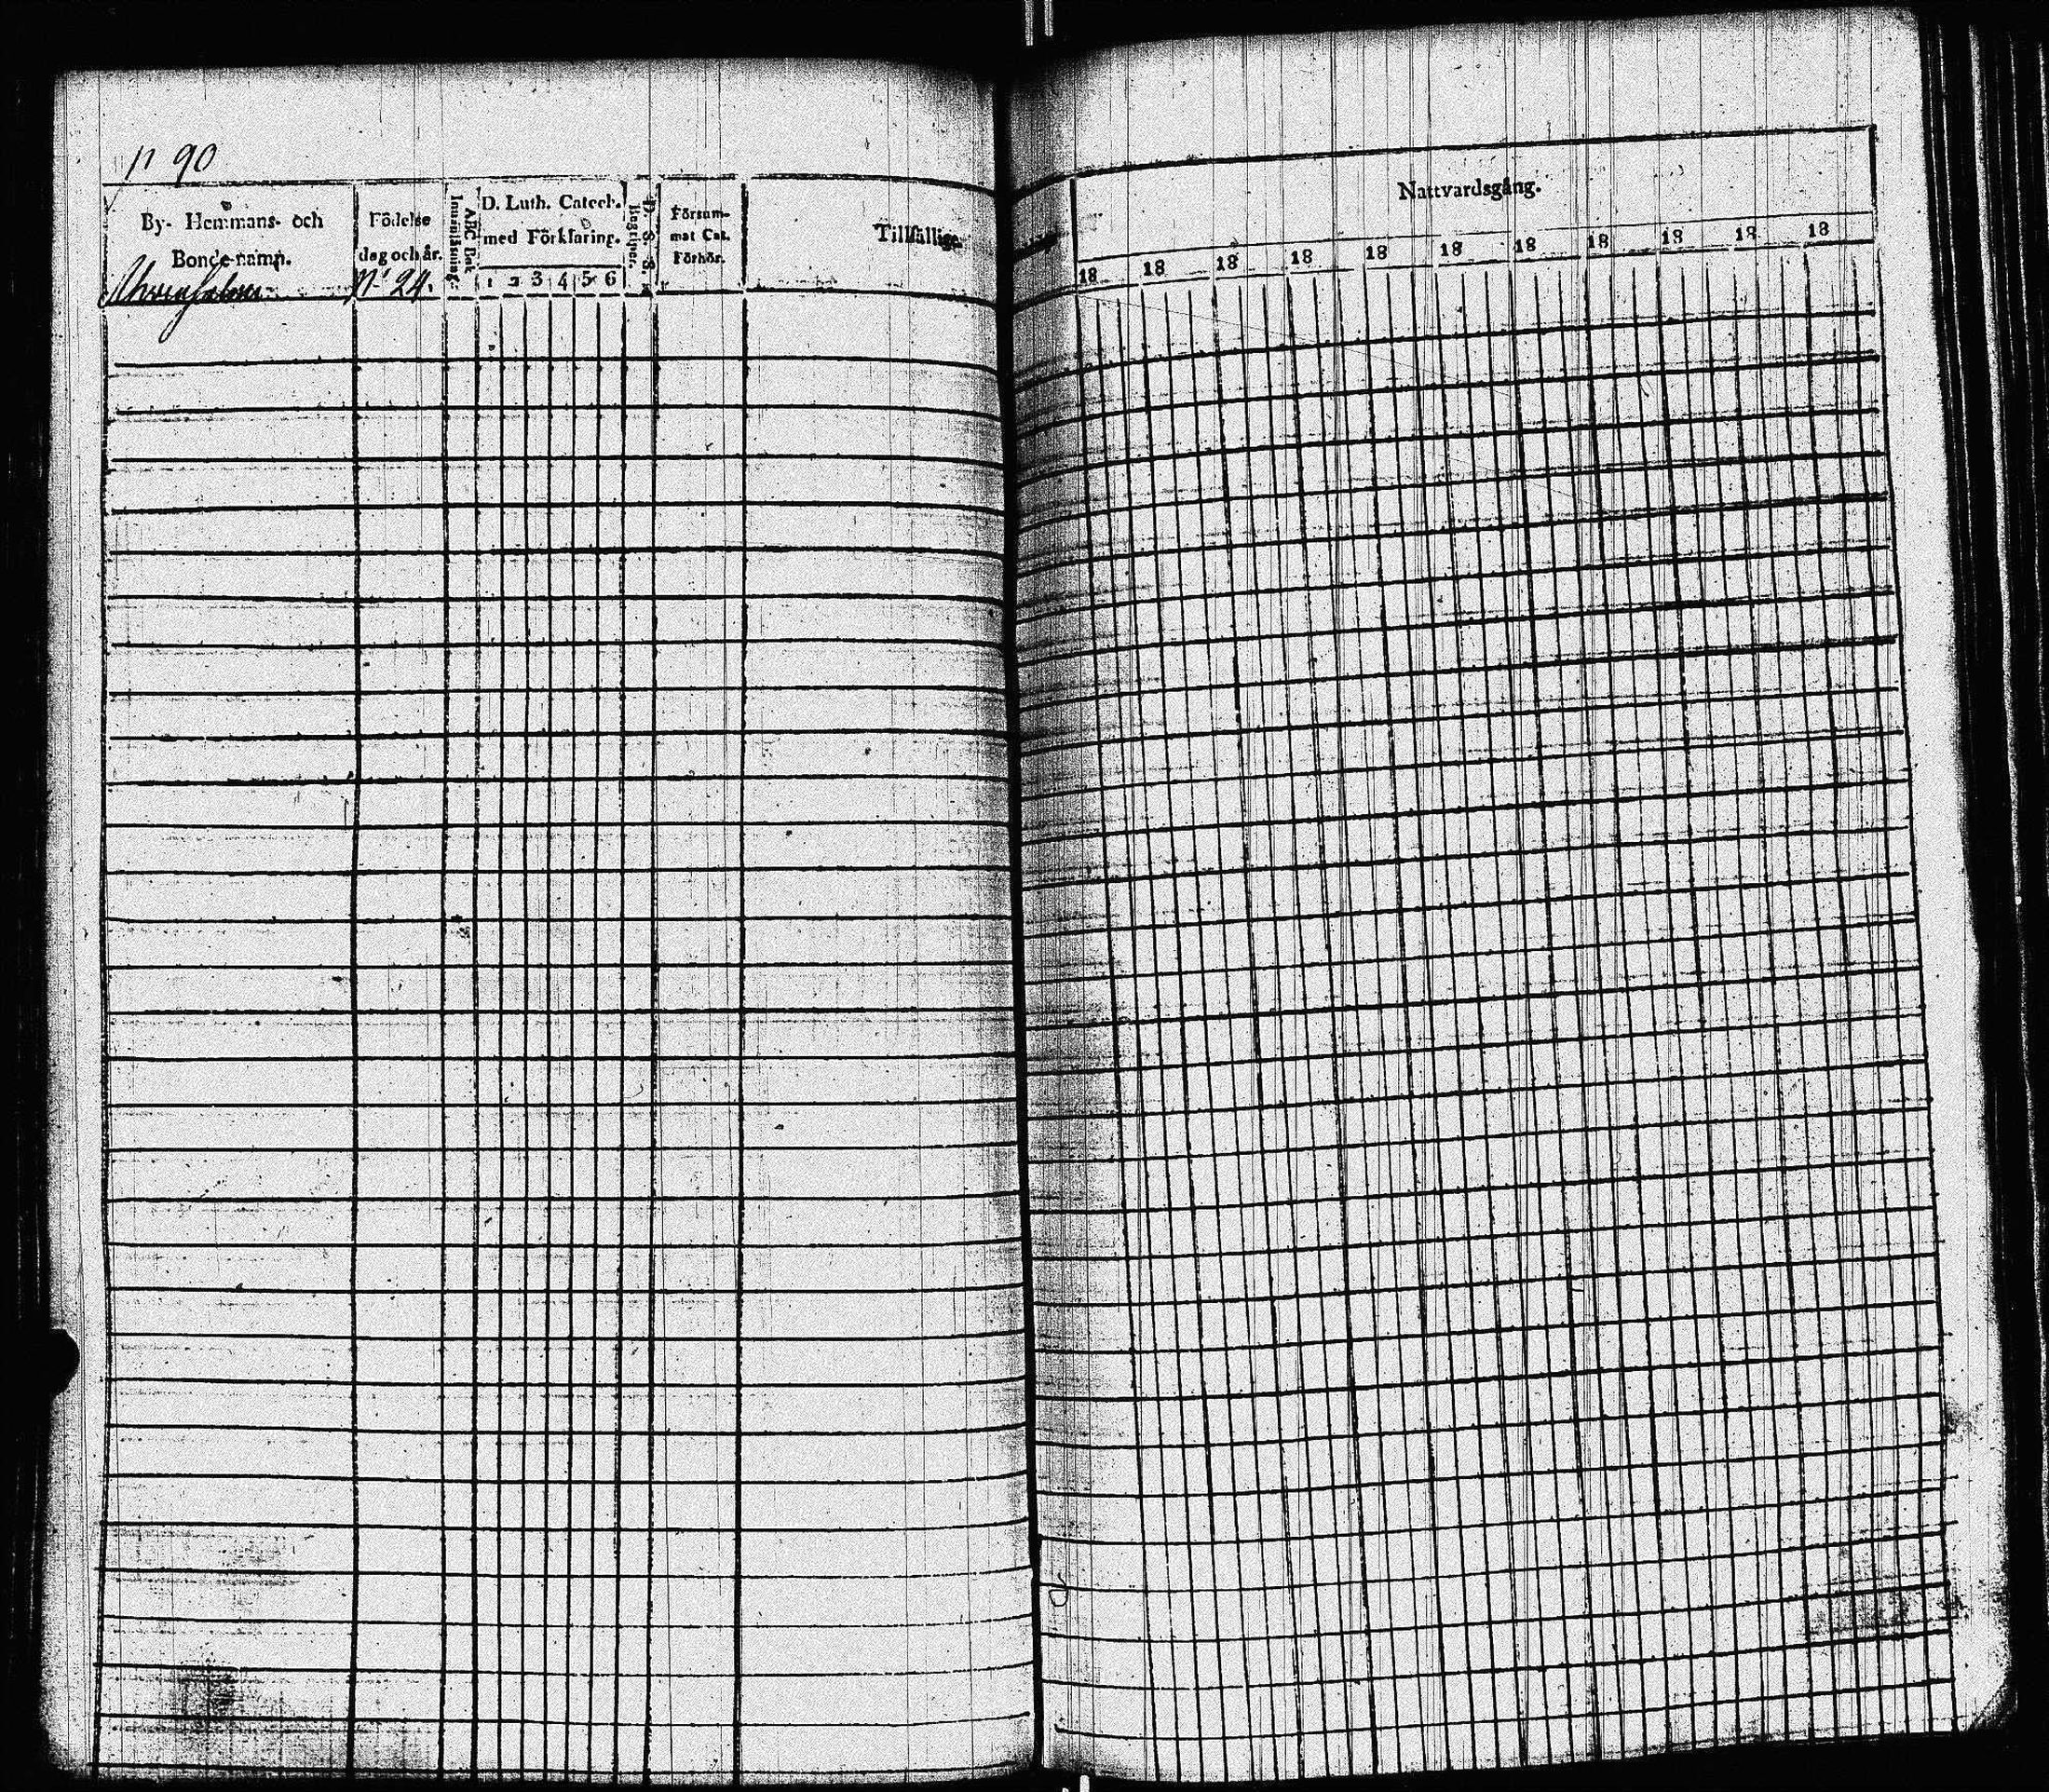 n 90
By- Hemmans- och
Bonde-namn.
Födelse
dag och år.
No 24.
ABC Bok
Innanläsning.
D. Luth. Catech.
med Förklaring.
1 2 3 4 5 6
D. S. S.
Försum-
mat Cat.
Förhör.
Tillfällige
Nattvardsgång.
18 18 18 18 18 18 18 18 18 18 18